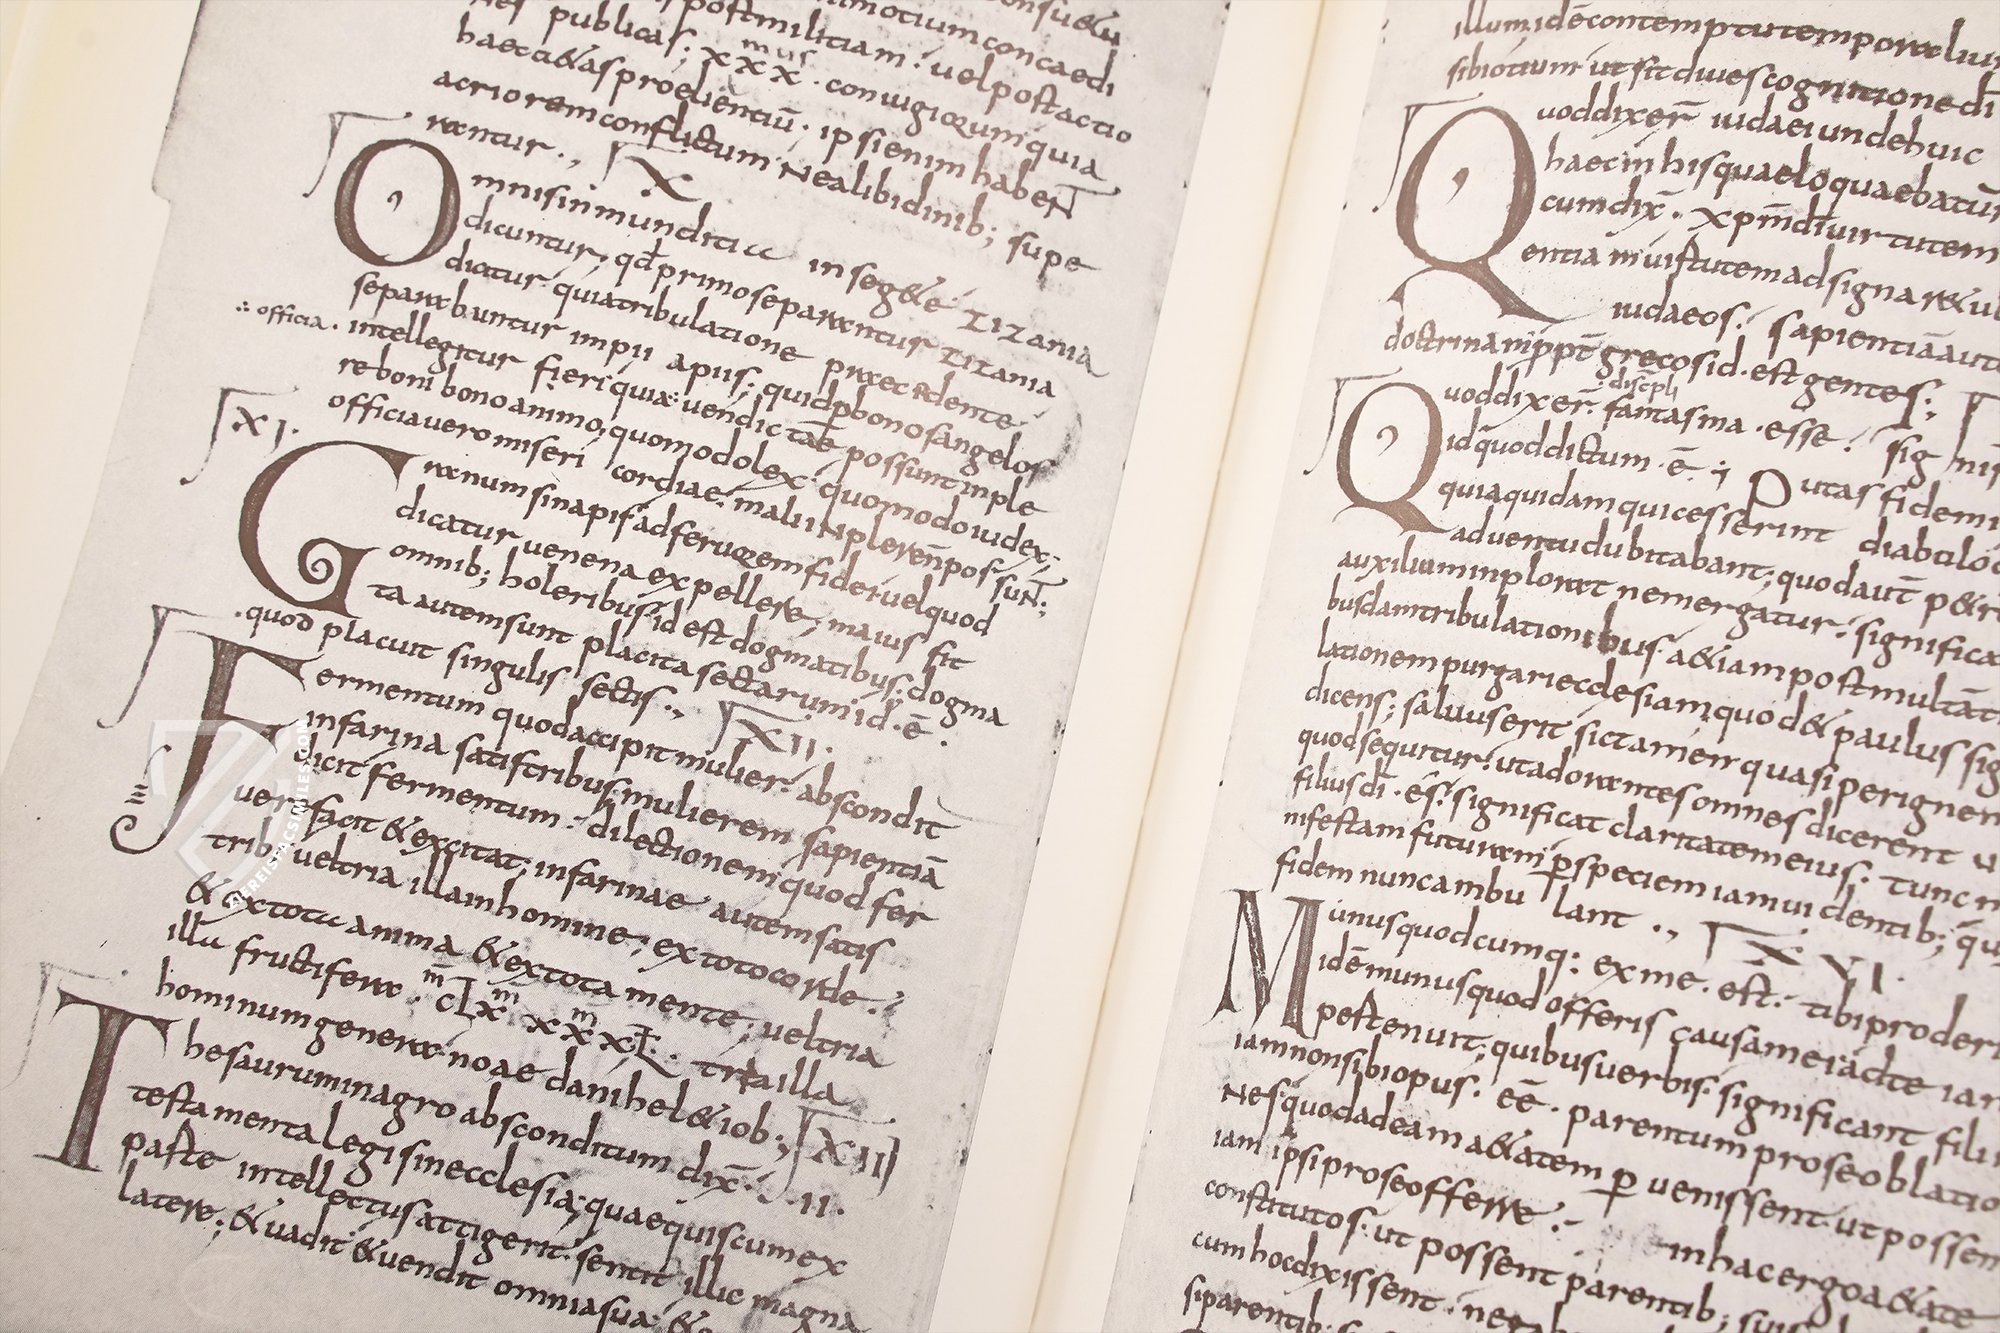 publicas; xxx. coniugiorum quia
haec &aas proelientiū. ipsi enim haben̄t
acriorem conflictum Ne a libidinib; supe
rentur.,
X
Omnis inmunditiae in seg&e zizania
dicuntur, qđ primo separentur zizania
dicitur quia tribulatione praecedente
separabuntur impii apiis; quid p bonos angelos
∴ officia.
intellegitur fieri quia: uendictae possunt inple
re boni bono animo, quomodo lex quomodo iudex;
officia uero misericordiae mali iNplere n̄ possuN̄t;
XI.
Granum sinapis ad feruorem fidei uel quod
dicatur uenena expellere, maius sit
omnib; holeribus id est dogmatibus; dogma
ta autem sunt placita sectarum id. ē.
quod placuit singulis sectis.,
XII.
Fermentum quod accipit mulier. abscondit
in farina satis tribus; mulierem sapientiā
dicit fermentum. dilectionem quod fer
uere facit & excitat; in farinae autem satis
trib; uel tria illa in homine; ex toto corde.
& ex tota anima & ex tota mente; uel tria
illa fructifera. clx xxxL. tria illa
hominum genera noae danihel & iob;
XIII
Thesaurum in agro absconditum dix̄. II.
testamenta legis in ecclesia; quae quis cum ex
parte intellectus attigerit. sentit illic magna
latere; & uadit & uendit omnia sua: &
sibi otium ut sit diues cognitione dī
Quod dixer̄ iudaei unde huic
haec in his quae loquaebatur
cum dix̄. xpm̄ dī uirtutem
iudaeos. sapientiā aut
doctrinam ppt grecos id. est gentes;
discipli
Quod dixer̄. fantasma. esse.
id quod dictum. ē. ; Putas fidem
quia quidam qui cesserint diabulo
aduentu dubitabant; quod aut̄ p&r
auxilium inplorat ne mergatur. significa
busdam tribulationibus. a& iam post multā
lationem purgari ecclesiam quod & paulus sig
dicens; saluus erit sic tamen quasi per ignem
quod sequitur. ut adorantes omnes dicerent u
filius dī. es. significat claritatem eius. tunc
nifestam futuram p speciem iam uidentib;
fidem nunc ambulant.,
XVI.
Munus quodcumq; ex me. est. tibi proderi
idē munus quod offeris causa mei ad te
pestenuit; quibus uerbis. significant filii
iam non sibi opus. eē. parentum pro se oblatio
Nes quod ad eam a&atem p uenissent. ut possen
iam ipsi pro se offerre. in hac ergo a&ate
constitutos. ut possent parentib; suis
cum hoc dixissent.
si parentib;